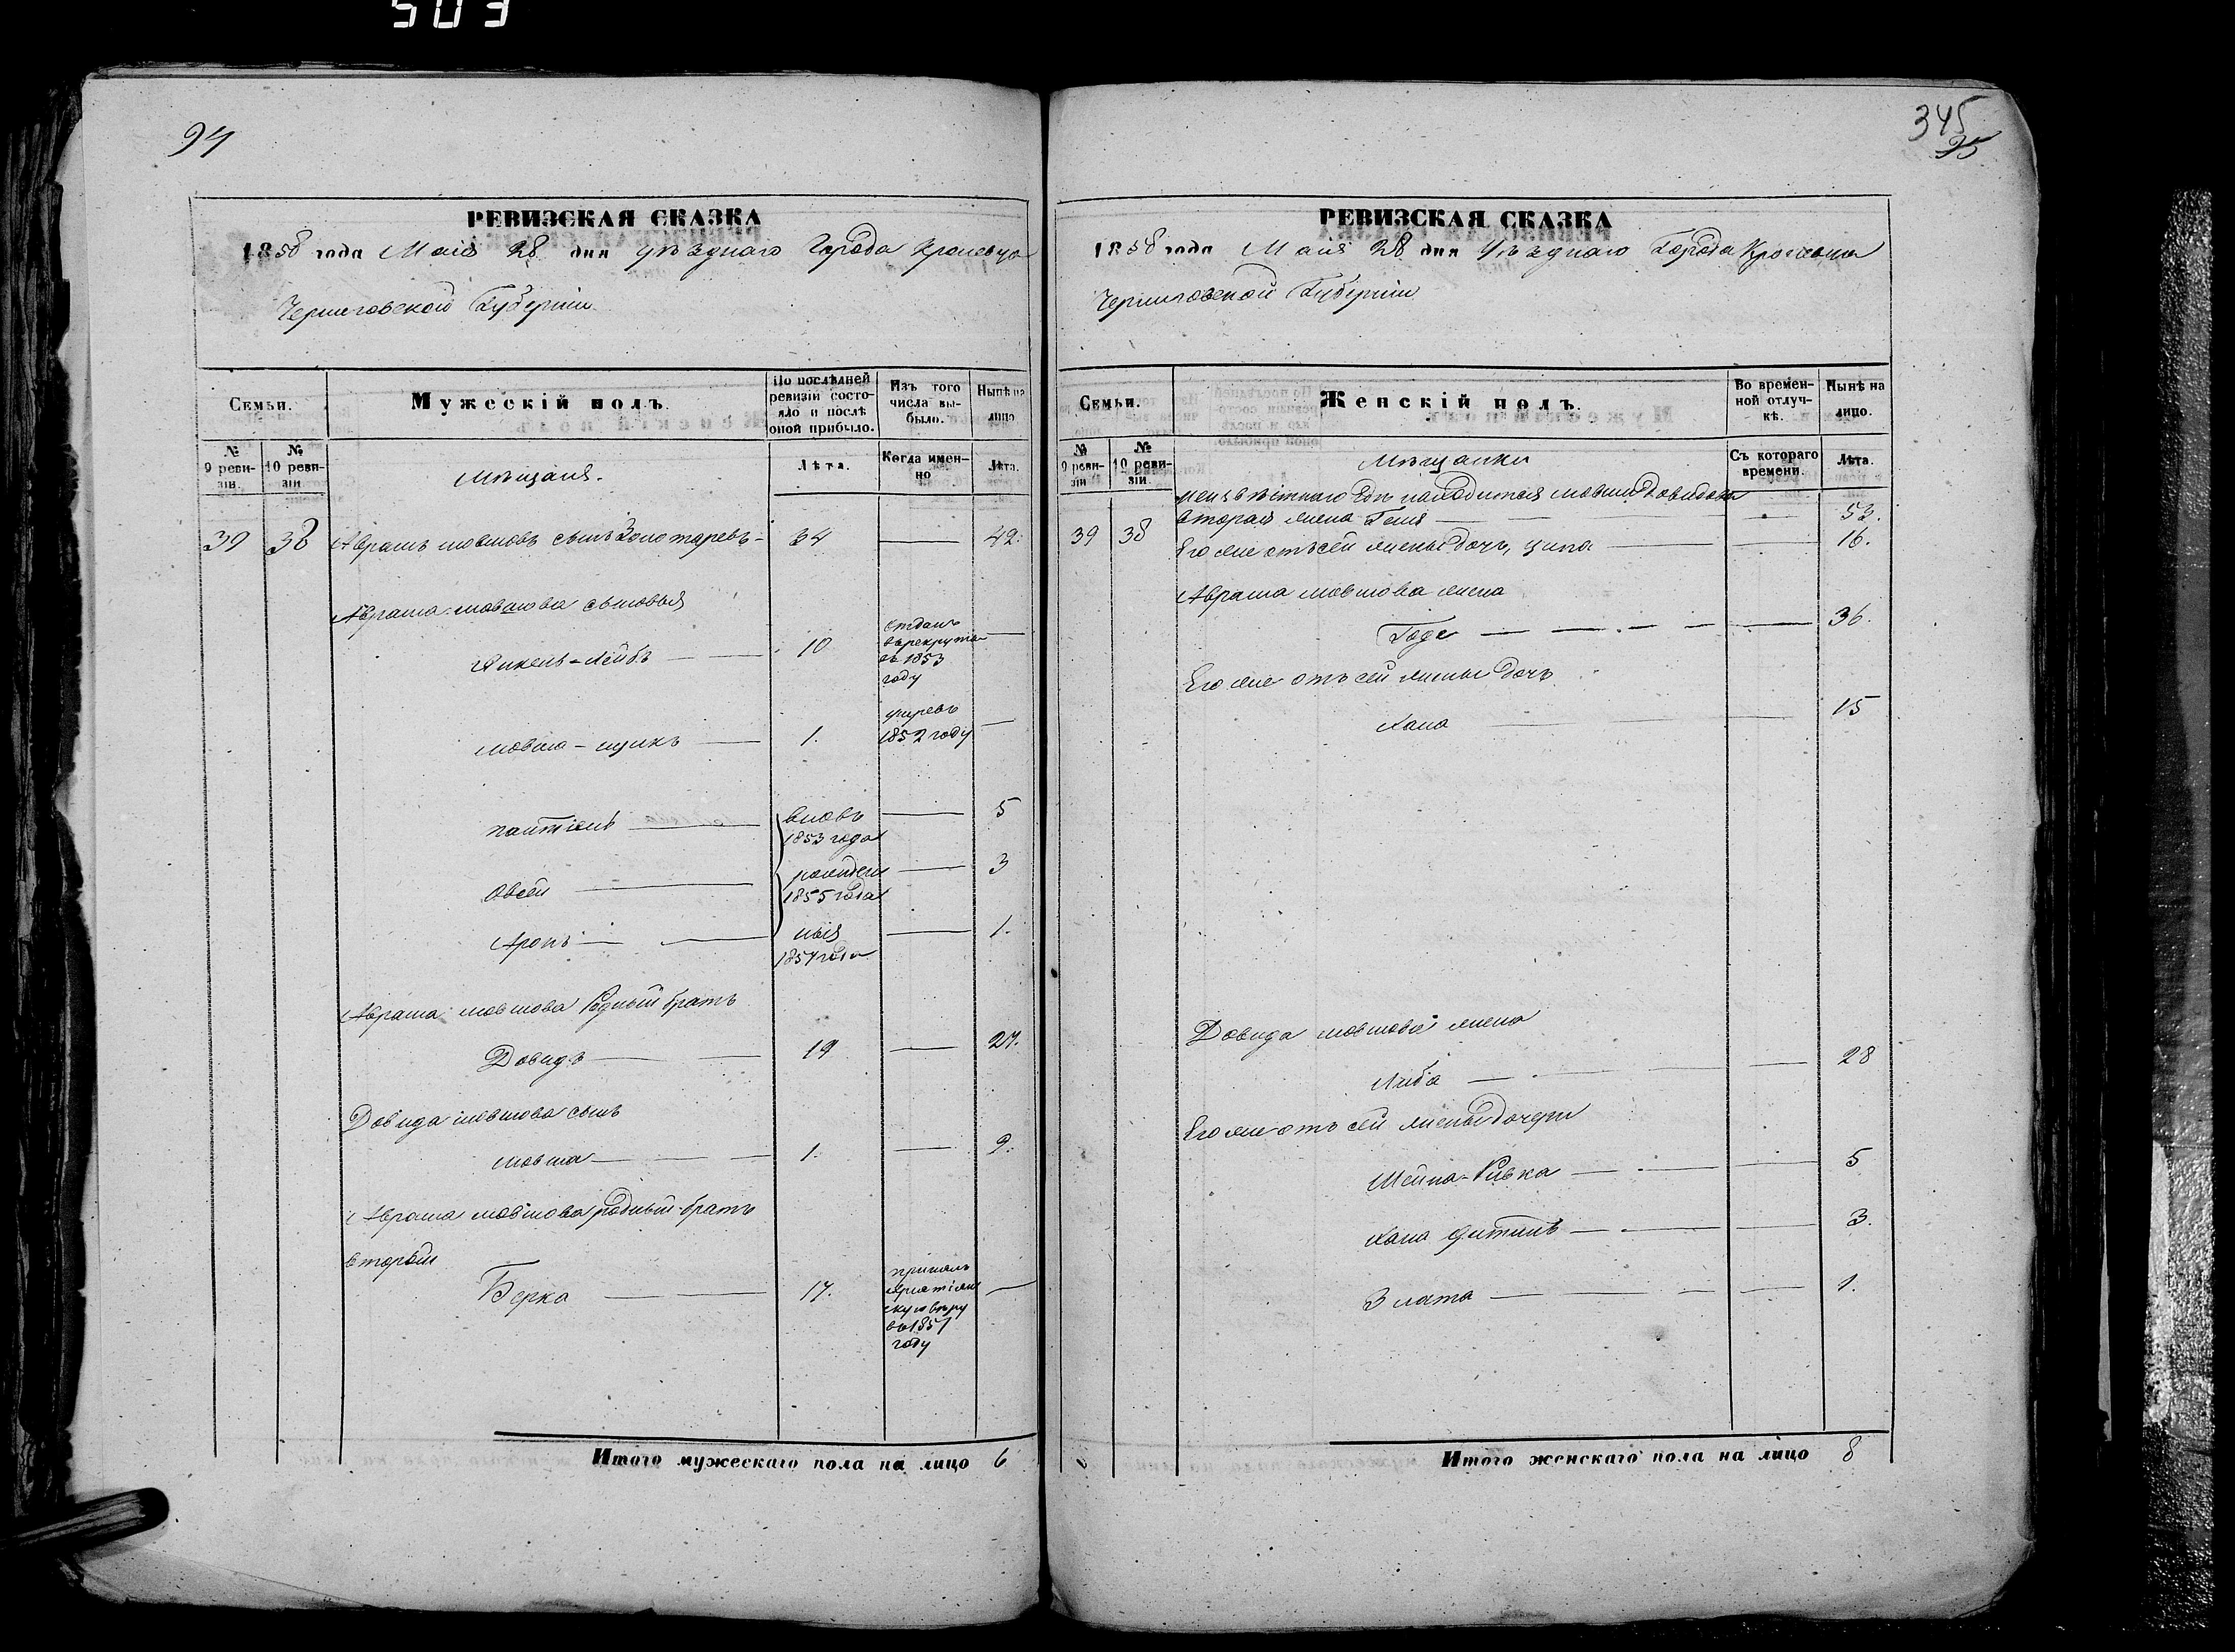 503
94
РЕВИЗСКАЯ СКАЗКА
1858 года Маія 28 дня уѣзднаго Города Кролевца
Черниговской Губерніи
Семьи.
Мужескій полъ.
По послѣдней ревизіи состояло и послѣ оной прибыло.
Изъ того числа выбыло.
Нынѣ на лицо
№ 9 ревизіи.
№ 10 ревизіи
Мѣщаня.
Лѣта.
Когда именно
Лѣта.
39 38 Абрамъ мовшовъ сынъ Золотаревъ 34 42.
Абрама мовшова сыновья
Янкель-Лейбъ 10 отданъ
в рекруты
въ 1853
году
мовша- 1. умеръ
1852 году
вновь 5
1853 года
Овсей рожден 3
1855 года
Аронъ ныя 1.
1857 года
Абрама мовшова Родный братъ
Довидъ 19 27.
Довида мовшова сынъ
мовша 1. 9.
Абрама мовшова родный братъ
вторый
Берка 17. принялъ
христіян
скую вѣру
въ 1851
году
Итого мужескаго пола на лицо 6
345
95
РЕВИЗСКАЯ СКАЗКА
1858 года Маія 28 дня Уѣзднаго Города Кролевца
Черниговской Губерніи
Семьи.
Женскій полъ.
Во временной отлучкѣ.
Нынѣ на лицо.
№ 9 ревизіи
№ 10 ревизіи.
Мѣщанки
Съ котораго времени.
Лѣта.
неизвѣстнаго гдѣ находится мовши Довидова
39 38 вторая жена Геня 53.
Его же отъ сей жены дочь, Ципа 16.
Абрама мовшова жена
Годе 36.
Его же отъ сей жены дочь
Хана 15
Довида мовшова жена
Либа 28
Его же отъ сей жены дочери
Шейна-Ривка 5
Хана 3.
Злата 1.
Итого женскаго пола на лицо 8